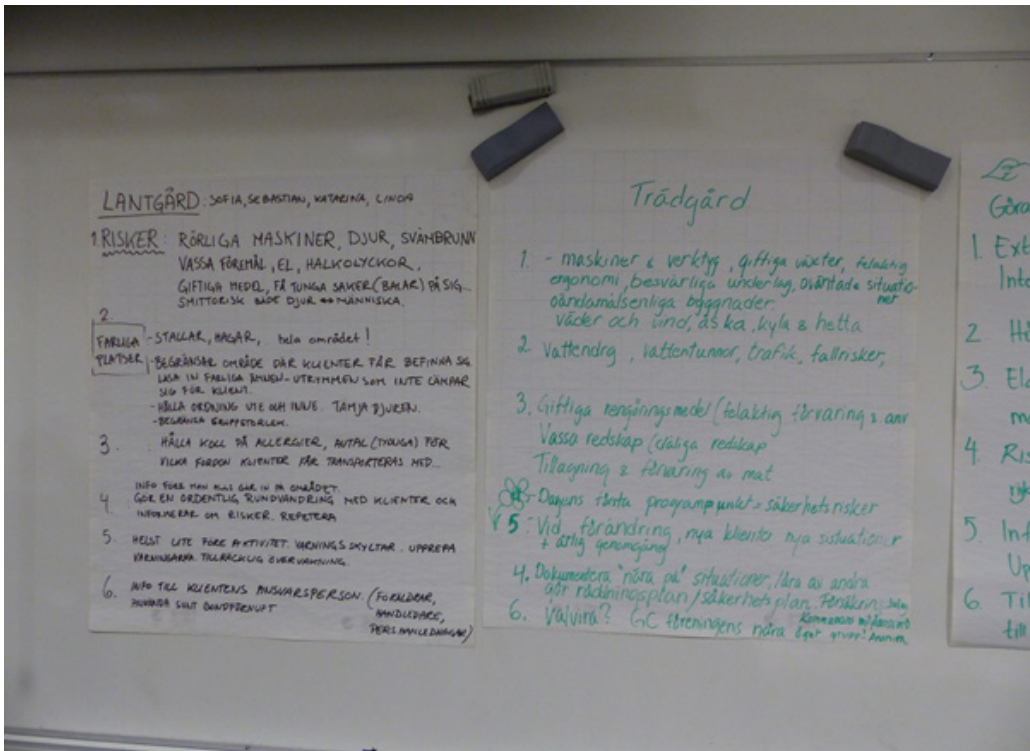 LANTGÅRD: SOFIA, SEBASTIAN, KATARINA, LINDA
1. RISKER: RÖRLIGA MASKINER, DJUR, SVÄMBRUNN
VASSA FÖREMÅL, EL, HALKOLYCKOR,
GIFTIGA MEDEL, FÅ TUNGA SAKER (BALAR) PÅ SIG
SMITTORISK BÅDE DJUR ↔ MÄNNISKA.
2.
FARLIGA PLATSER
- STALLAR, HAGAR, hela området!
- BEGRÄNSAR OMRÅDE DÄR KLIENTER FÅR BEFINNA SIG
LÅSA IN FARLIGA ÄMNEN - UTRYMMEN SOM INTE LÄMPAR
SIG FÖR KLIENT.
- HÅLLA ORDNING UTE OCH INNE. TÄMJA DJUREN.
- BEGRÄNSA GRUPPSTORLEK.
3. HÅLLA KOLL PÅ ALLERGIER, AVTAL (TYDLIGA) PER
VILKA FORDON KLIENTER FÅR TRANSPORTERAS MED...
INFO FÖRE MAN ALLS GÅR IN PÅ OMRÅDET.
4. GÖR EN ORDENTLIG RUNDVANDRING MED KLIENTER OCH
INFORMERAR OM RISKER. REPETERA
5. HELST LITE FÖRE AKTIVITET. VARNINGSSKYLTAR. UPPREPA
VARNINGARNA. TILLRÄCKLIG ÖVERVAKNING.
6. INFO TILL KLIENTENS ANSVARSPERSON. (FÖRÄLDRAR,
ANVÄNDA SUNT BONDFÖRNUFT HANDLEDARE,
Trädgård
1. - maskiner & verktyg, giftiga växter, felaktig
ergonomi, besvärliga underlag, oväntade situationer
oändamålsenliga byggnader.
väder och vind, åska, kyla & hetta
2. Vattendrg, vattentunnor, trafik, fallrisker,
3. Giftiga rengöringsmedel (felaktig förvaring & anv
Vassa redskap (dåliga redskap
Tillagning & förvaring av mat
Dagens första programpunkt = säkerhetsrisker
5. Vid förändring, nya klienter nya sistuationer
+ årlig genomgång
4. Dokumentera "nära på" situationer, lära av andra
Gör räddningsplan/säkerhetsplan. Försäkrin
6. Valvira? GC föreningens nära
öget grupp! Anonym
Göra
1. Ext
Inte
2
3. Ela
4. Ris
5. Inf
Up
6. Til
till